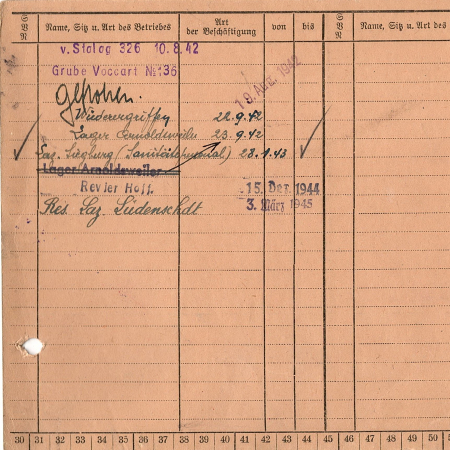 GVN Name, Sitz u. Art des Betriebes Art der Beschäftigung von bis GVN Name, Sitz u. Art des
v. Stalag 326 10.8.42
Grube Voccart № 136
19. Aug. 1942
geflohen.
Wiederergriffen 22.9.42
Lager Arnoldsweiler 23.9.42
Laz. Siegburg (Sanitätspersonal) 28.1.43
Lager Arnoldsweiler
Revier Hoff. 15. Dez. 1944
Res. Laz. Lüdenscheidt 3. März 1945
30 31 32 33 34 35 36 37 38 39 40 41 42 43 44 45 46 47 48 49 50 51